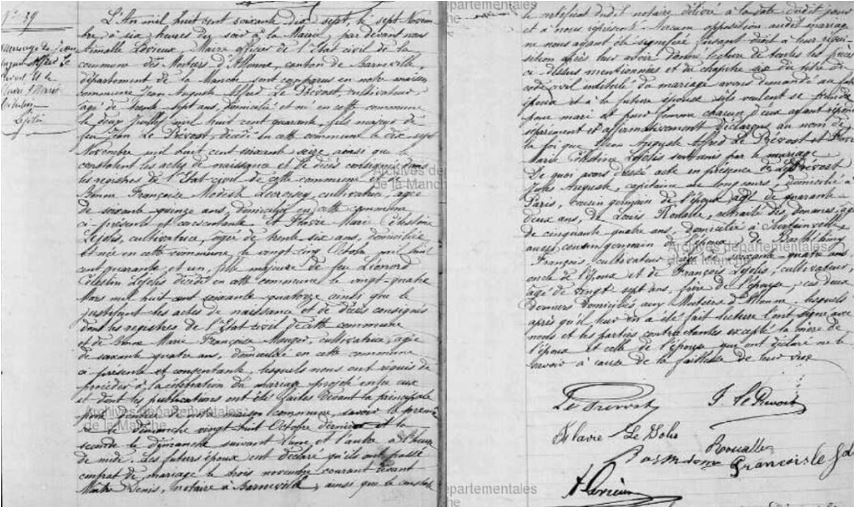 N° 39
Mariage de Jean
Auguste Alfred Le
Prévost et de
Flavie Marie
Célestine
Lefolis
L'An mil huit cent soixante dix sept, le sept Novem
bre à six heures du soir à la Mairie, par devant nous
Lerieux, Maire officier de l'Etat civil de la
commune des Moitiers d'Allonne, canton de Barneville,
département de la Manche sont comparus en notre maison
commune Jean Auguste Alfred Le Prévost, cultivateur
âgé de trente sept ans, domicilié et né en cette commune
le douze juillet mil huit cent quarante, fils majeur de
feu Jean Le Prévost, décédé en cette commune le dix sept
Novembre mil huit cent soixante seize ainsi que le
constatent les actes de naissance et de décès consignés dans
les registres de l'Etat civil de cette commune et de
Bonne Françoise Modeste cultivatrice, âgée
de soixante quinze ans, domiciliée en cette commune
ci présente et consentante et Flavie Marie Célestine
Lefolis, cultivatrice, âgée de trente six ans, domiciliée
et née en cette commune le vingt cinq Octobre mil huit
cent quarante et un, fille majeure de feu Léonord
Célestin Lefolis décédé en cette commune le vingt quatre
Mars mil huit cent soixante quatorze ainsi que le
justifient les actes de naissance et de décès consignés
dans les registres de l'Etat civil de cette commune
et de Bonne Marie Françoise Mauger, cultivatrice, âgée
de soixante quatre ans, domiciliée en cette commune
ci présente et consentante, lesquels nous ont requis de
procéder à la célébration du mariage projeté entre eux
et dont les publications ont été faites devant la principale
porte de notre maison commune, savoir la première
le dimanche vingt huit Octobre dernier et la
seconde le dimanche suivant l'une et l'autre à l'heure
de midi. Les futurs époux ont déclaré qu'ils ont passé
contrat de mariage le trois novembre courant devant
Maître Denis, notaire à Barneville, ainsi que le constate
le certificat dudit notaire délivré à la date dudit jour
et à nous représenté. Aucune opposition audit mariage
ne nous ayant été signifiée faisant droit à leur réqui
sition après leur avoir donné lecture de toutes les pièces
ci dessus mentionnées et du chapitre six du titre du
code civil intitulé du mariage avons demandé au futur
époux et à la future épouse s'ils veulent se prendre
pour mari et pour femme chacun d'eux ayant répondu
séparément et affirmativement déclarons au nom de
la loi que Jean Auguste Alfred Le Prévost et Flavie
Marie Célestine Lefolis sont unis par le mariage
De quoi avons dressé acte en présence de Le Prévost
Jules Auguste, capitaine au long cours, domicilié à
Paris, cousin germain de l'époux âgé de quarante
deux ans, de Louis Roualle, retraité des douanes, âgé
de cinquante quatre ans, domicilié à
aussi cousin germain de l'époux, de
François, cultivateur âgé de soixante quatre ans
oncle de l'époux et de François Lefolis, cultivateur,
âgé de vingt sept ans, frère de l'épouse, ces deux
derniers domiciliés aux Moitiers d'Allonne. lesquels
après qu'il leur en a été fait lecture l'ont signé avec
nous et les parties contractantes excepté la mère de
l'époux et celle de l'épouse qui ont déclaré ne le
savoir à cause de la faiblesse de leur vue
Le Prévost J. Le Prevost
Flavie Le Folis
Roualle
François le fol
Archives départementales
de la Manche
Archives départementales
de la Manche
Archives départementales
de la Manche
départementales